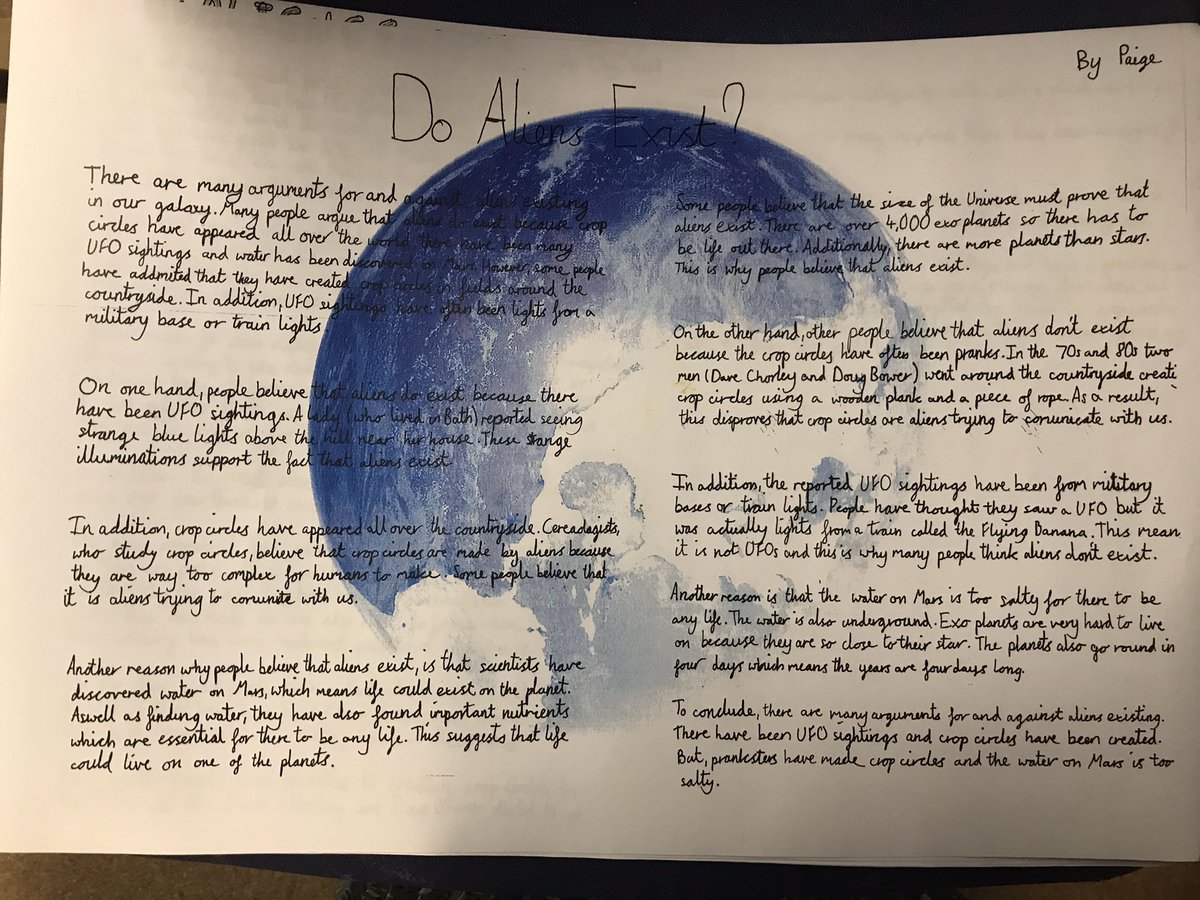 By Paige
Do Aliens Exist?
There are many arguments for and against aliens existing
in our galaxy. Many people argue that aliens do exist because crop
circles have appeared all over the world, there have been many
UFO sightings and water has been discovered on Mars. However, some people
have addmited that they have created crop circles in fields around the
countryside. In addition, UFO sightings have often been lights from a
military base or train lights
On one hand, people believe that aliens do exist because there
have been UFO sightings. A lady (who lived in Bath) reported seeing
strange blue lights above the hill near her house. These stange
illuminations support the fact that aliens exist.
In addition, crop circles have appeared all over the countryside. Cereadagists,
who study crop circles, believe that crop circles are made by aliens because
they are way too complex for humans to make. Some people believe that
it is aliens trying to comunite with us.
Another reason why people believe that aliens exist, is that scientists have
discovered water on Mars, which means life could exist on the planet.
Aswell as finding water, they have also found important nutrients
which are essential for there to be any life. This suggests that life
could live on one of the planets.
Some people believe that the size of the Universe must prove that
aliens exist. There are over 4,000 exoplanets so there has to
be life out there. Additionally, there are more planets than stars.
This is why people believe that aliens exist.
On the other hand, other people believe that aliens don't exist
because the crop circles have often been pranks. In the 70s and 80s two
men (Dave Chorley and Doug Bower) went around the countryside creati
crop circles using a wooden plank and a piece of rope. As a result,
this disproves that crop circles are aliens trying to comunicate with us.
In addition, the reported UFO sightings have been from military
bases or train lights. People have thought they saw a UFO but it
was actually lights from a train called the Flying Banana. This mean
it is not UFOs and this is why many people think aliens don't exist.
Another reason is that the water on Mars is too salty for there to be
any life. The water is also underground. Exo planets are very hard to live
on because they are so close to their star. The planets also go round in
four days which means the years are four days long.
To conclude, there are many arguments for and against aliens existing.
There have been UFO sightings and crop circles have been created.
But, pranksters have made crop circles and the water on Mars is too
salty.